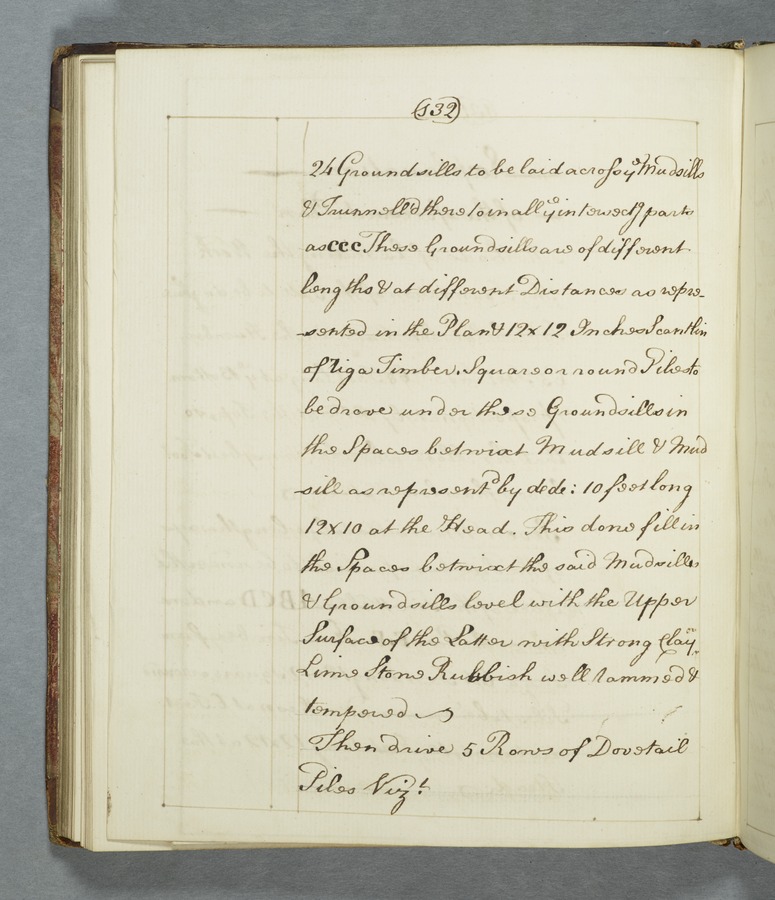 (132)
24 Groundsills to be laid across yᵉ Mudsills
& Trunnell'd thereto in all yᵉ intersectᵍ parts
as ccc These Groundsills are of different
lengths & at different Distances as repre-
sented in the Plan & 12x12 Inches Scantlin
of Riga Timber. Square or round Piles to
be drove under these Groundsills in
the Spaces betwixt Mudsill & Mud
sill as representᵈ by dede: 10 feet long
12x10 at the Head. This done fill in
the Spaces betwixt the said Mudsills
& Groundsills level with the Upper
Surface of the Latter with Strong Clay, or
Lime Stone Rubbish well rammed &
tempered
Then drive 5 Rows of Dovetail
Piles Vizᵗ